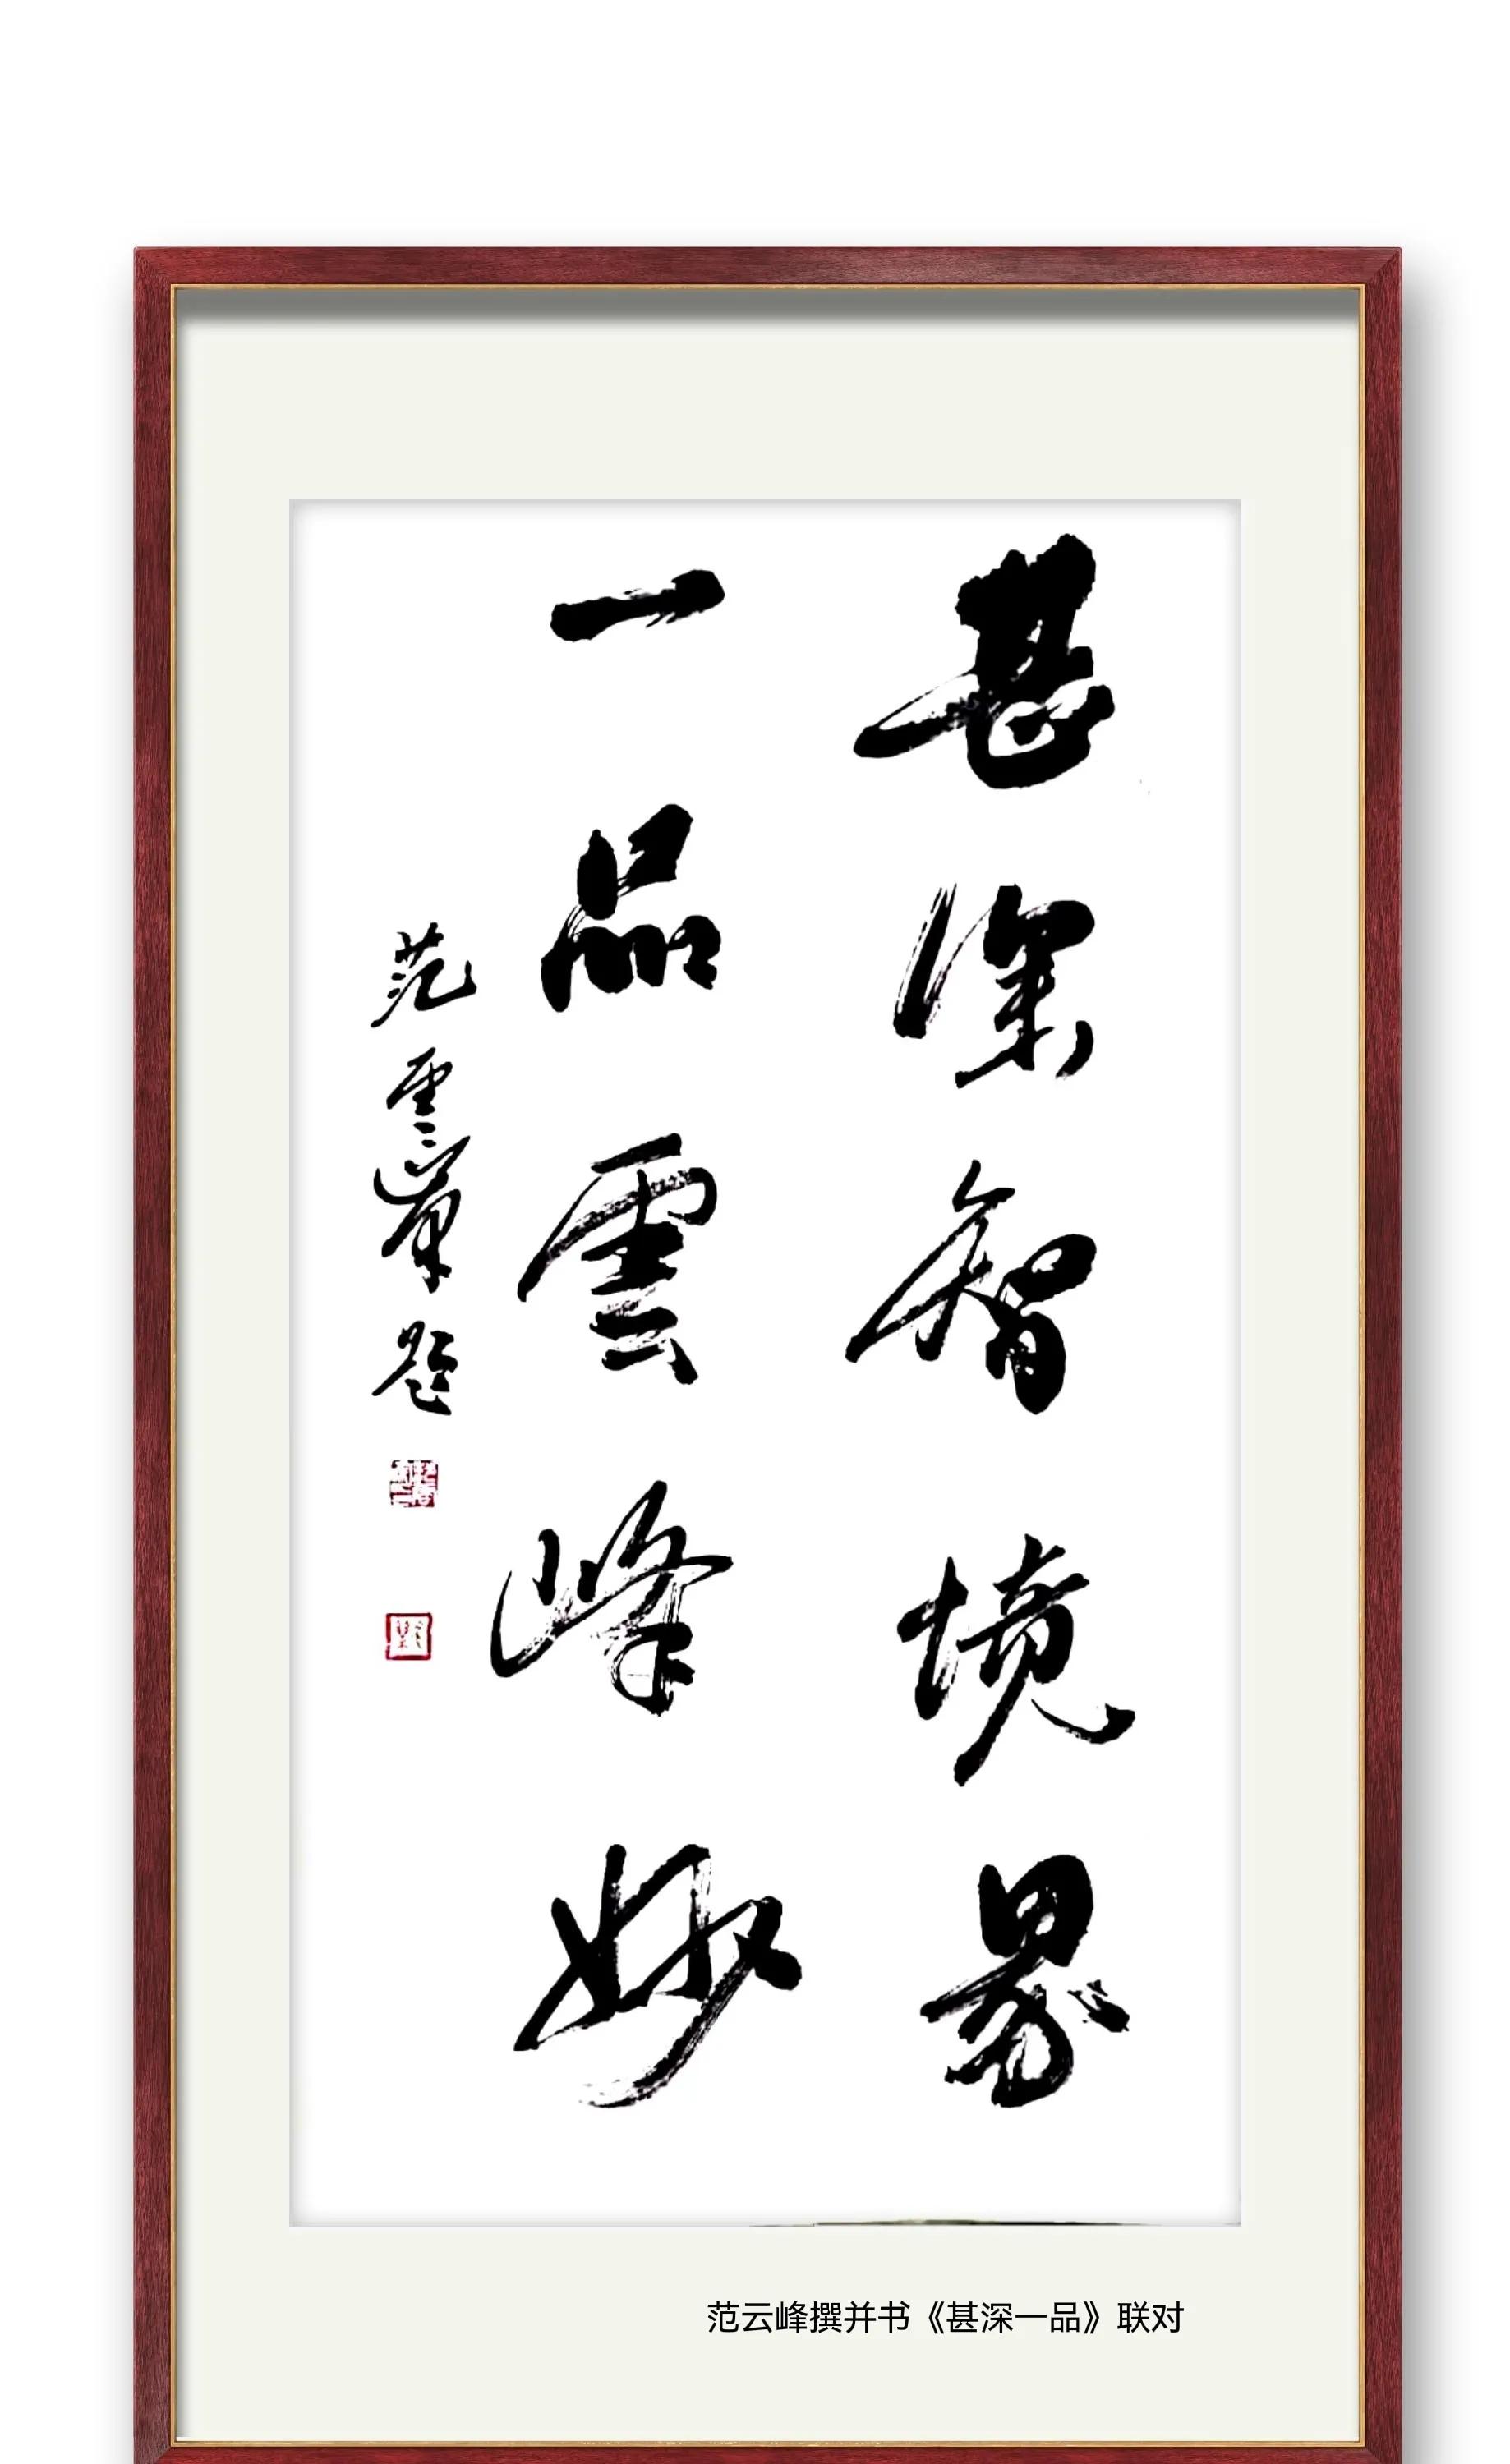 甚深智境界
一品雲峰妙
范雲峯題
范云峰撰并书《甚深一品》联对